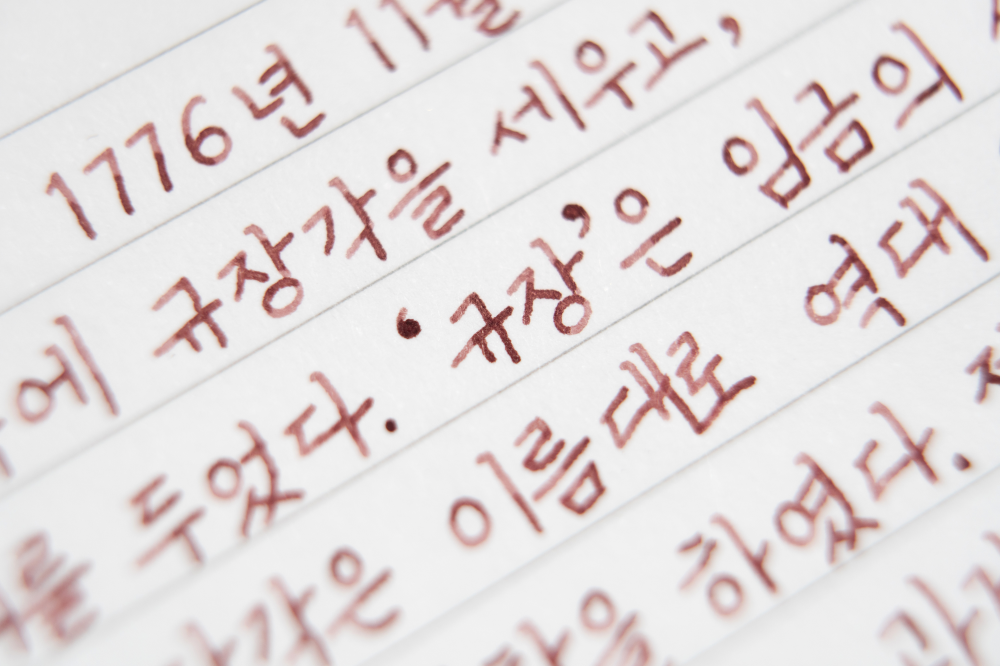 1776년 11월
에 규장각을 세우고,
를 두었다. ‘규장’은 임금의
각은 이름대로 역대
을 하였다.